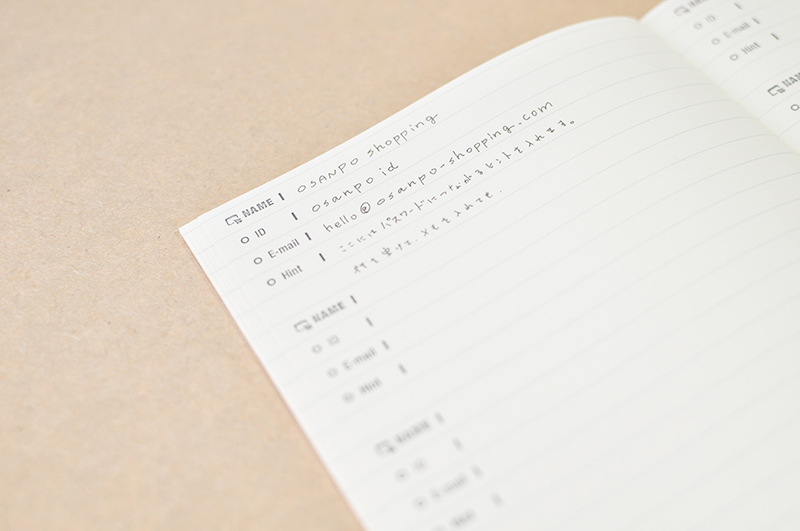 NAME | OSANPO shopping
ID | osanpo id
E-mail | hello@osanpo-shopping.com
Hint | ここにはパスワードにつながるヒントを入れます。
行を空けて、メモを入れても.
NAME |
ID |
E-mail |
Hint |
NAME |
ID |
E-mail |
Hint |
ID |
E-mail |
Hint |
NAME